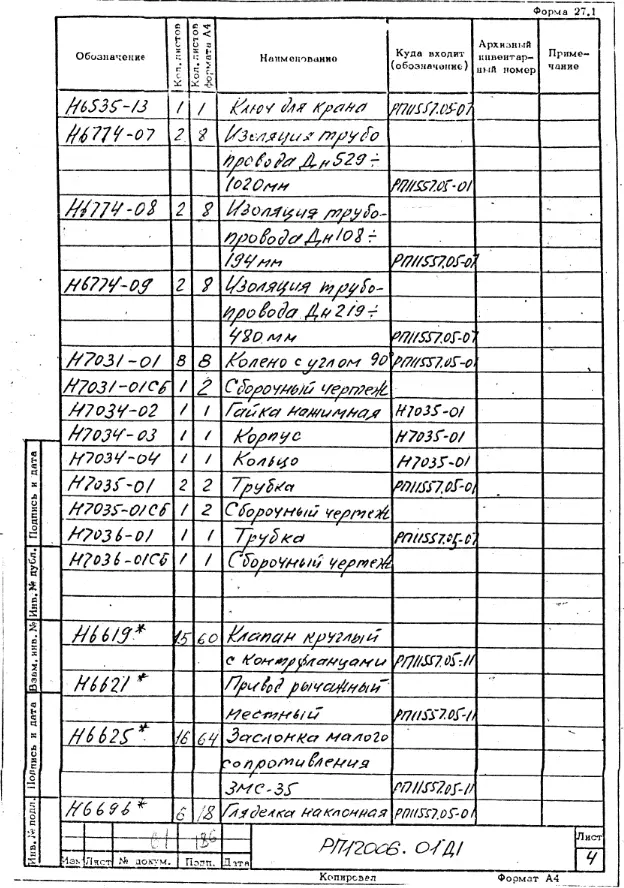 Форма 27.1
Обозначение Кол. листов Кол. листов формата А4 Наименование Куда входит (обозначение) Архивный инвентарный номер Примечание
Н6535-13 1 1 Ключ для крана РП11557.05-07
Н6774-07 2 8 Изоляция трубо
провода Дн529÷
1020мм РП11557.05-01
Н6774-08 2 8 Изоляция трубо-
провода Дн108÷
194мм РП11557.05-07
Н6774-09 2 8 Изоляция трубо-
провода Дн219÷
480мм РП11557.05-07
Н7031-01 8 8 Колено с углом 90 РП11557.05-01
Н7031-01СБ 1 2 Сборочный чертеж
Н7034-02 1 1 Гайка нажимная Н7035-01
Н7034-03 1 1 Корпус Н7035-01
Н7034-04 1 1 Кольцо Н7035-01
Н7035-01 2 2 Трубка РП11557.05-01
Н7035-01СБ 1 2 Сборочный чертеж
Н7036-01 1 1 Трубка РП11557.05-07
Н7036-01СБ 1 1 Сборочный чертеж
Н6619* 15 60 Клапан круглый
с контрфланцами РП11557.05-11
Н6621* Привод рычажный
местный РП11557.05-11
Н6625* 16 64 Заслонка малого
сопротивления
ЗМС-35 РП11557.05-11
Н6696* 6 18 Гляделка наклонная РП11557.05-01
Подпись и дата
Инв. № дубл.
Взам. инв. №
Подпись и дата
Инв. № подл.
Изм Лист № докум. Подп. Дата
РП12006.01Д1
Лист
4
Копировал Формат А4